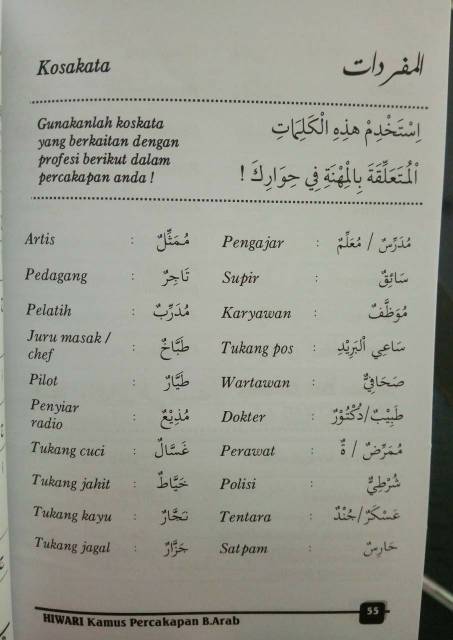 Kosakata المفردات
Gunakanlah koskata
yang berkaitan dengan
profesi berikut dalam
percakapan anda !
اِسْتَخْدِمْ هٰذِهِ الْكَلِمَاتِ
الْمُتَعَلِّقَةَ بِالْمِهْنَةِ فِي حِوَارِكَ !
Artis : مُمَثِّلٌ
Pedagang : تَاجِرٌ
Pelatih : مُدَرِّبٌ
Juru masak /
chef : طَبَّاخٌ
Pilot : طَيَّارٌ
Penyiar
radio : مُذِيْعٌ
Tukang cuci : غَسَّالٌ
Tukang jahit : خَيَّاطٌ
Tukang kayu : نَجَّارٌ
Tukang jagal : جَزَّارٌ
Pengajar : مُدَرِّسٌ / مُعَلِّمٌ
Supir : سَائِقٌ
Karyawan : مُوَظَّفٌ
Tukang pos : سَاعِي الْبَرِيْدِ
Wartawan : صَحَافِيٌّ
Dokter : طَبِيْبٌ/دُكْتُوْرٌ
Perawat : مُمَرِّضٌ / ةٌ
Polisi : شُرْطِيٌّ
Tentara : عَسْكَرٌ/جُنْدٌ
Satpam : حَارِسٌ
HIWARI Kamus Percakapan B.Arab 55